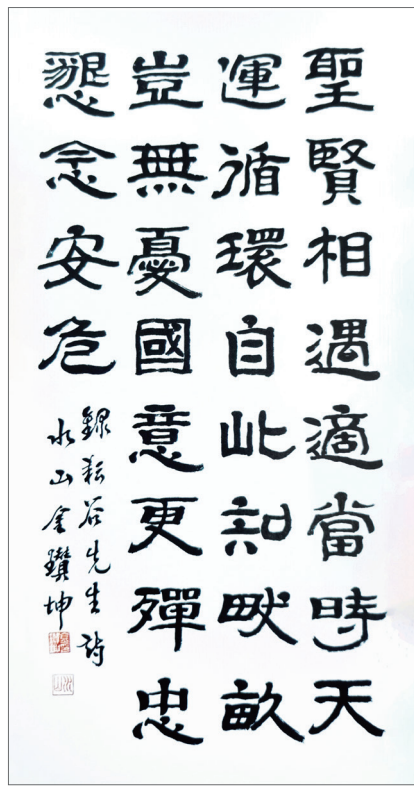 聖賢相遇適當時天
運循環自此知畎畝
豈無憂國意更殫忠
懇念安危
錄耘谷先生詩
水山金瓚坤